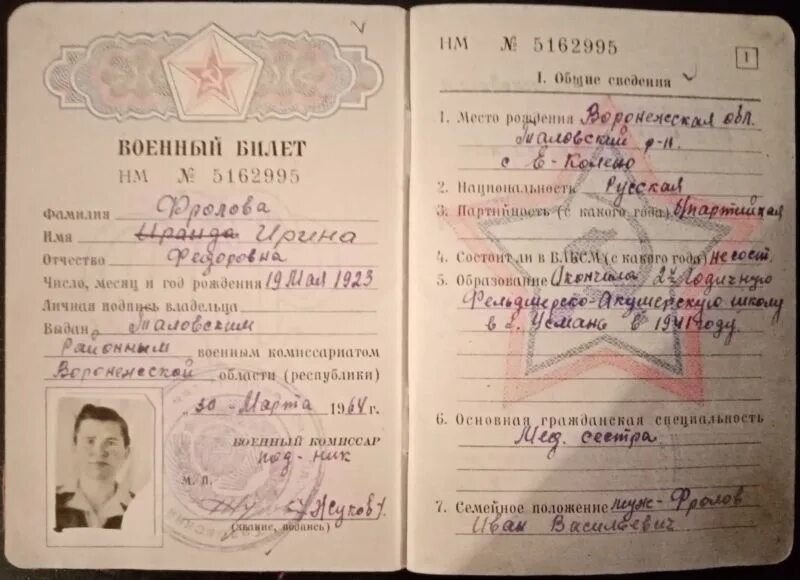 ВОЕННЫЙ БИЛЕТ
НМ № 5162995
Фамилия Фролова
Имя Ираида Ирина
Отчество Федоровна
Число, месяц и год рождения 19 Мая 1923
Личная подпись владельца
Выдан Таловским
Районным военным комиссариатом
Воронежской области (республики)
„30 - Марта 1964 г.
ВОЕННЫЙ КОМИССАР
под-ник
М. П.
Жуков
(звание, подпись)
НМ № 5162995
1
I. Общие сведения
1. Место рождения Воронежская обл.
Таловский р-н.
с Е-Колено
2. Национальность Русская
3. Партийность (с какого года) б/партийная
4. Состоит ли в ВЛКСМ (с какого года) не сост.
5. Образование Окончила 2х Годичную
Фельдшерско-Акушерскую школу
в г. Усмань в 1941 году.
6. Основная гражданская специальность
Мед. сестра
7. Семейное положение муж-Фролов
Иван Васильевич